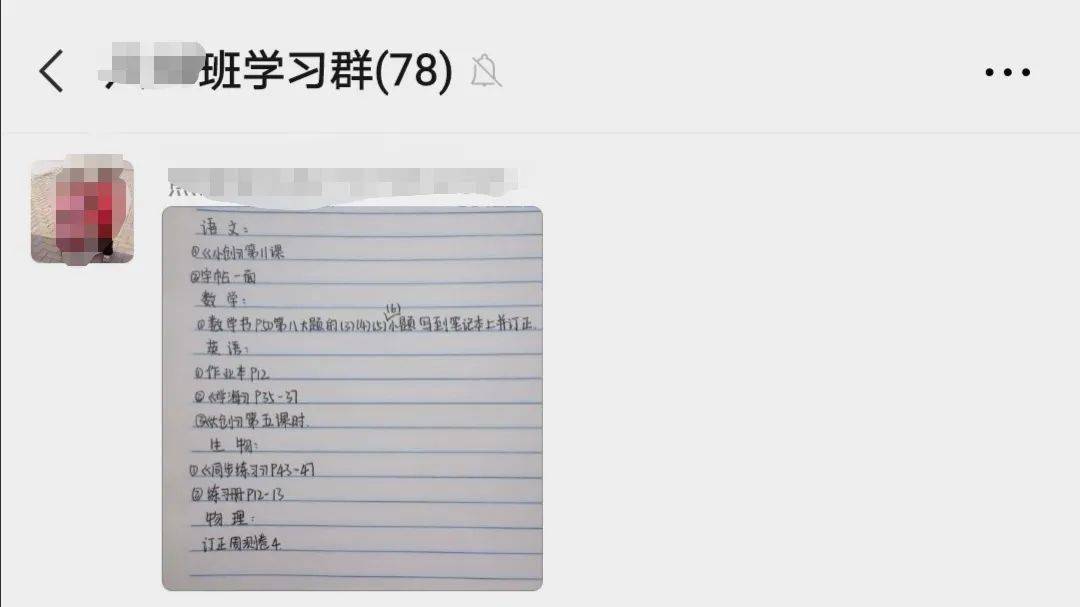 班学习群(78)
语文：
①《小创》第11课
②字帖一面
数学：
(6)
①数学书P50第八大题的(3)(4)(5)小题写到笔记本上并订正.
英语：
①作业本P12
②《学海》P35-37
③《大创》第五课时.
生物：
①《同步练习》P43-47
②练习册P12-13
物理：
订正周测卷4